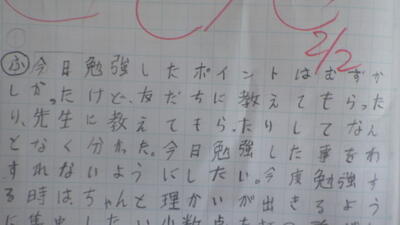 2/2
ふ 今日勉強したポイントはむずか
しかったけど、友だちに教えてもらった
り、先生に教えてもらったりしてなん
となく分かった。今日勉強した事をわ
すれないようにしたい。今度勉強す
る時は、ちゃんと理かいが出きるよう
に集中したい小数点を